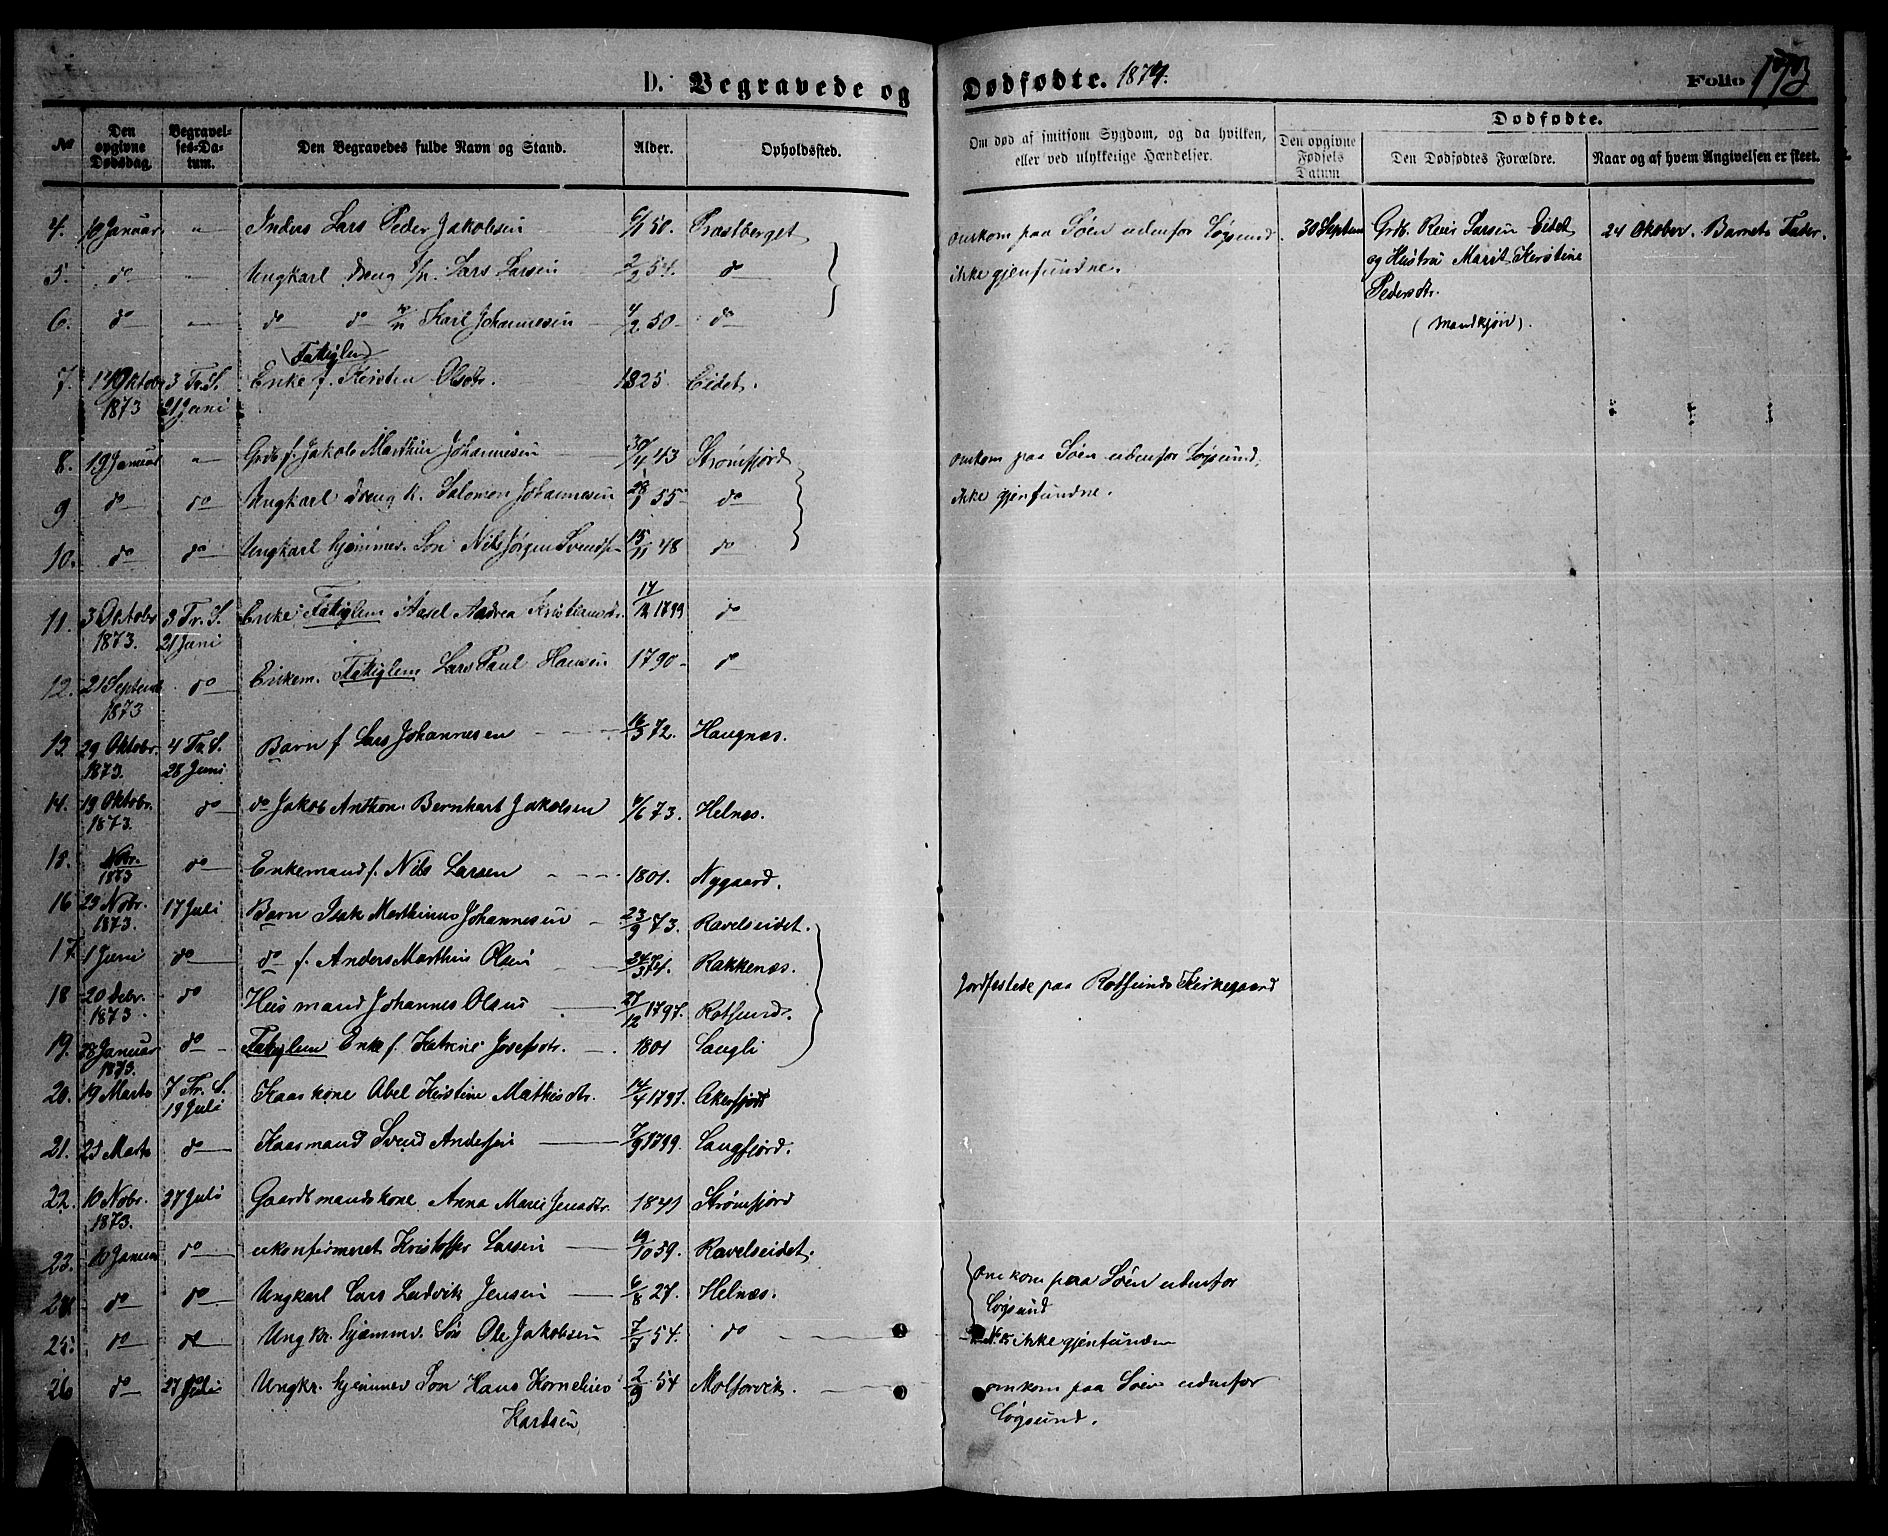 D. Begravede og Dødfødte. 1874. Folio 173
No
Den opgivne Dødsdag.
Begravelses-Datum.
Den Begravedes fulde Navn og Stand.
Alder.
Opholdssted.
Om død af smitsom Sygdom, og da hvilken, eller ved ulykkelige Hændelser.
Dødfødte.
Den opgivne Fødsels Datum
Den Dødfødtes Forældre.
Naar og af hvem Angivelsen er skeet.
4. 10 Januar " Inders Lars Peder Jakobsen 50. Prastberget omkom paa Søen udenfor Løgsund. 30 Septem Grdb. Reier Larsen Eidet 24 Oktober. Barnets Fader.
ikke gjenfundne. og Hustru Marit Kerstine
Pedersdtr.
(mandkjøn).
5. do " Ungkarl Dreng Lars Larsen 2/2 54. do
6. do do do Karl Johannesen 4/2 50 do
(Fattiglem)
7. Oktobr 1873 3 Tr. S. 21 Juni Enke f. Kersten Olsdtr. 1825 Eidet.
8. 19 Januar " Grdb. f. Jakob Marthin Johannesen 30/4 43 Strømfjord omkom paa Søen udenfor Løgsund,
9 do do Ungkarl Dreng Salomon Johannesen 55 do ikke gjenfundne.
10. do do Ungkarl hjemmev. Søn Nils Jørgen Svends 15/11 48 do
11. 3 Oktobr 1873. 3 Tr. S. 21 Juni Enke Fattiglem Aasel Andrea Kristiansdtr. 1799 do
12. 21 Septemb 1873 do Enkem. Fattiglem Lars Paul Hansen 1790 do
13. 29 Oktobr. 1873. 4 Tr. S. 28 Juni Barn f. Lars Johannesen 16/3 72. Haugnæs.
14. 19 Oktobr. 1873. do do Jakob Anthon Bernhart Jakobsen 6/6 73. Helnæs.
15. Nobr. 1873 do Enkemand f. Nils Larsen 1801. Nygaard.
16 Nobr. 1873. 17 Juli Barn Isak Marthinus Johannesen 23/9 73. Ravelseidet.
17. 1 Juni do do f. Anders Marthin Olsen 74. Rakkenæs.
18 20 Debr. 1873. do Husmand Johannes Olsen 27/12 1797. Rotsund. Jordfæstede paa Rotsunds Kirkegaard
19. Januar 1873. do Fattiglem Enke f. Katrine Josefsdtr. 1801 Langli
20. 19 Marts 7 Tr. S. 19 Juli Kaarkone Abel Kerstine Mathisdtr. 14/4 1797. Akerfjord
21. 25 Marts do Kaarmand Svend Andersen 7/9 1799. Langfjord.
22. 10 Nobr. 1873. 27 Juli Gaardmandskone Anna Marie Jensdtr. 1841 Strømfjord
23. 10 Januar do ukonfirmeret Kristoffer Larsen 59. Ravelseidet.
24 do do Ungkarl Lars Ludvik Jensen 6/8 27. Helnæs. omkom paa Søen udenfor
Løgsund
25. do do Ungkr. hjemmev. Søn Ole Jakobsen 7/7 54. do ikke gjenfunden
26 do 27 Juli Ungkr. hjemmev Søn Hans Kornelius 2/9 54 Molforvik. omkom paa Søen udenfor
Karlsen Løgsund.